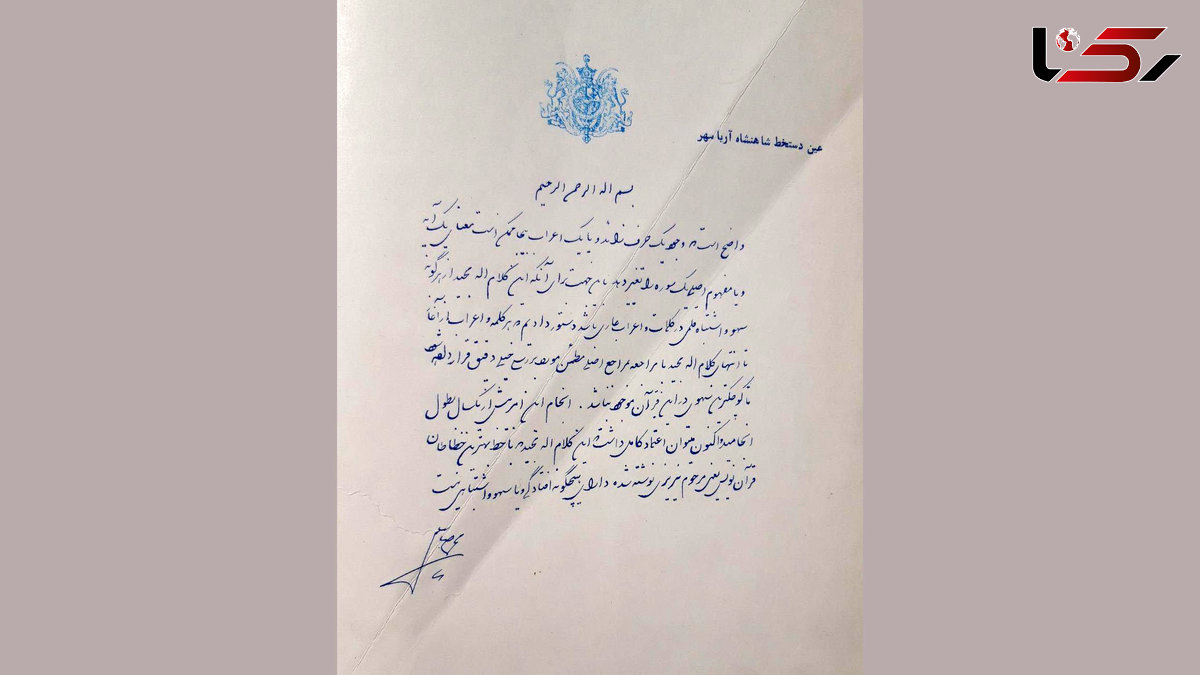 رکنا
عین دستخط شاهنشاه آریامهر
بسم اله الرحمن الرحیم
واضح است که وجود یک حرف زائد و یا یک اعراب بیجا ممکن است معنای یک آیه
و یا مفهوم اصلی یک سوره را تغییر دهد باین جهت برای آنکه این کلام اله مجید از هر گونه
سهو و اشتباه قلمی در کلمات و اعراب عاری باشد دستور دادیم که هر کلمه و اعراب از آغاز
تا انتهای کلام اله مجید با مراجعه بمراجع اصلی مطمئن مورد بررسی خیلی دقیق قرار داده شود
تا کوچکترین سهوی در این قرآن موجود نباشد . انجام این امر بیش از یکسال بطول
انجامید و اکنون میتوان اعتماد کامل داشت که این کلام اله مجید که با خط بهترین خطاطان
قرآن نویس یعنی مرحوم نیریزی نوشته شده دارای هیچگونه افتادگی و یا سهو و اشتباهی نیست